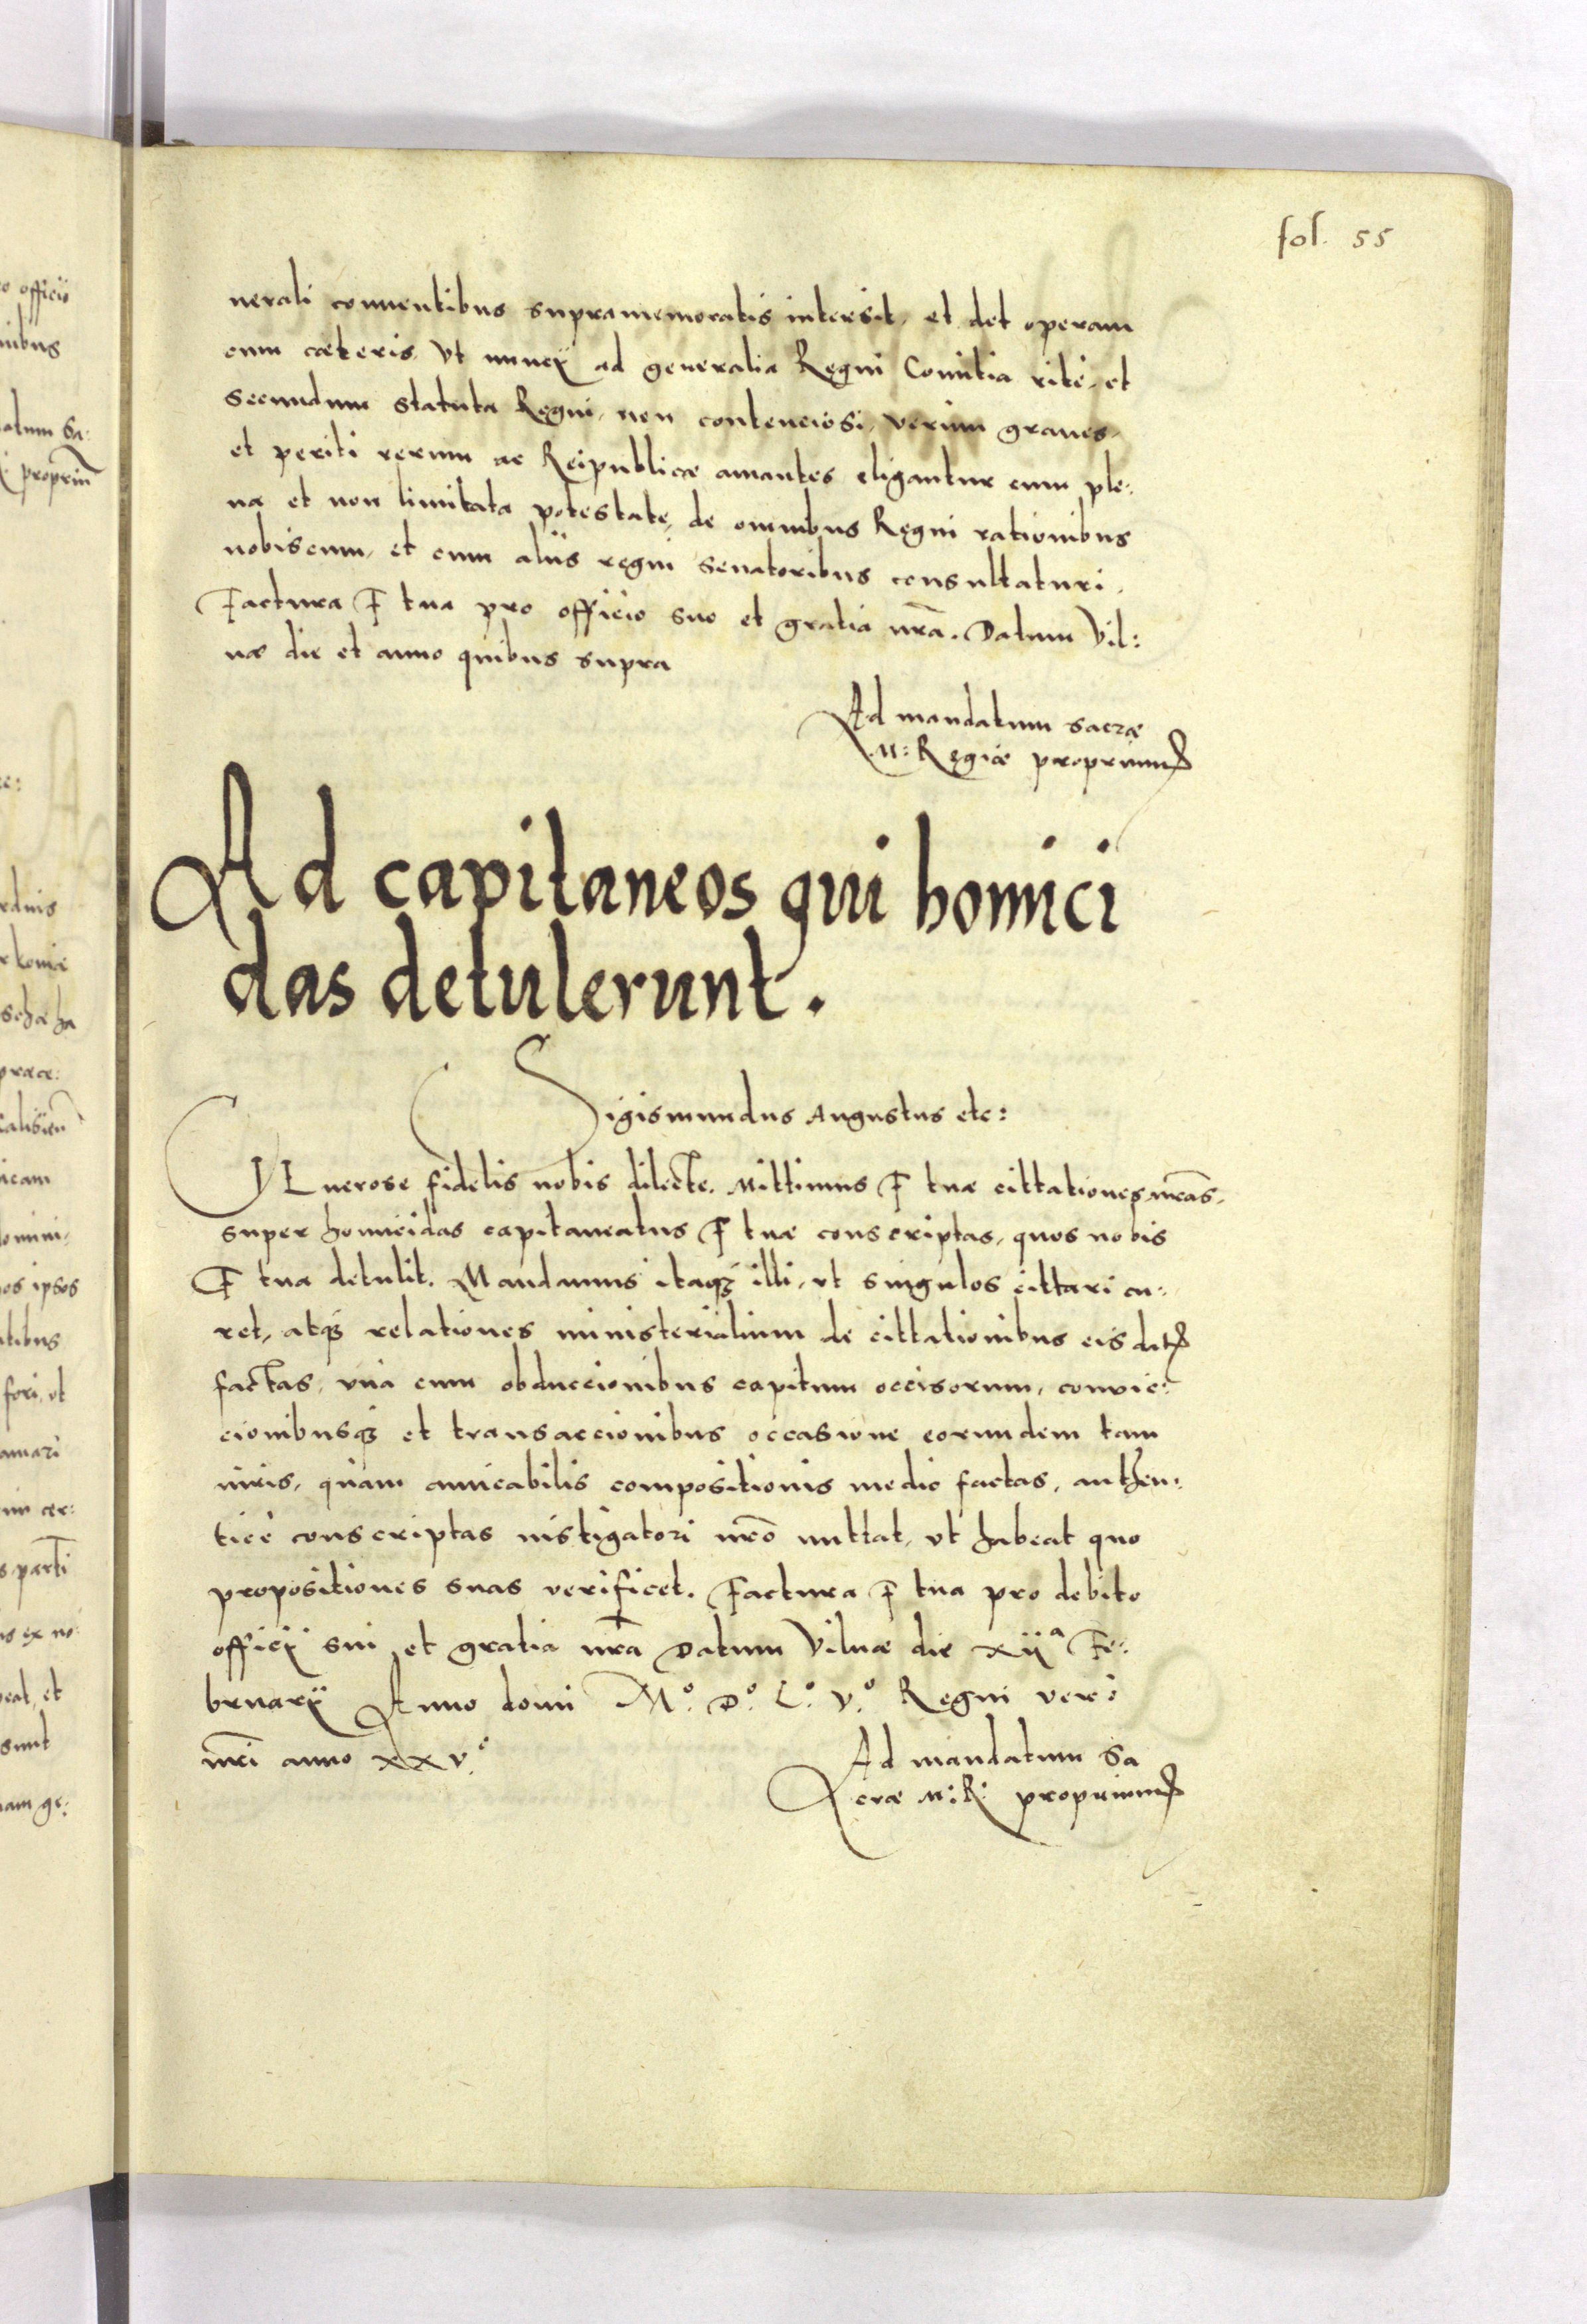 fol. 55
nerali conuentibus supramemoratis intersit, et det operam
cum cæteris, vt nuncij ad generalia Regni Comitia ritè, et
secundum statuta Regni, non contenciosi, verùm graues,
et periti rerum ac Reipublicæ amantes eligantur cum ple:
na et non limitata potestate, de omnibus Regni rationibus
nobiscum, et cum alijs regni senatoribus consultaturi.
Factura F tua pro officio suo et gratia nrã. Datum Vil:
næ die et anno quibus supra
Ad mandatum sacræ
M: Regiæ proprium
Ad capitaneos qui homici
das detulerunt.
Sigismundus Augustus etc:
GEnerose fidelis nobis dilecte. Mittimus F tuæ cittationes nrãs,
super homicidas capitaneatus F tuæ conscriptas, quos nobis
F tua detulit. Mandamus itaqꝫ illi, vt singulos cittari cu:
ret, atqꝫ relationes ministerialium de cittationibus eis datis
factas, vnà cum obduccionibus capitum occisorum, convic:
cionibusqꝫ et transaccionibus occasione eorundem tam
iuris, quàm amicabilis compositionis medio factas, authen:
ticè conscriptas instigatori nrõ mittat, vt habeat quo
propositiones suas verificet. Factura F tua pro debito
officij sui et gratia nrã Datum Vilnæ die xijª Fe:
bruarij Anno domi M.º D.º L.º V.º Regni verò
nrĩ anno xxv.º
Ad mandatum Sa
cræ M: R: proprium